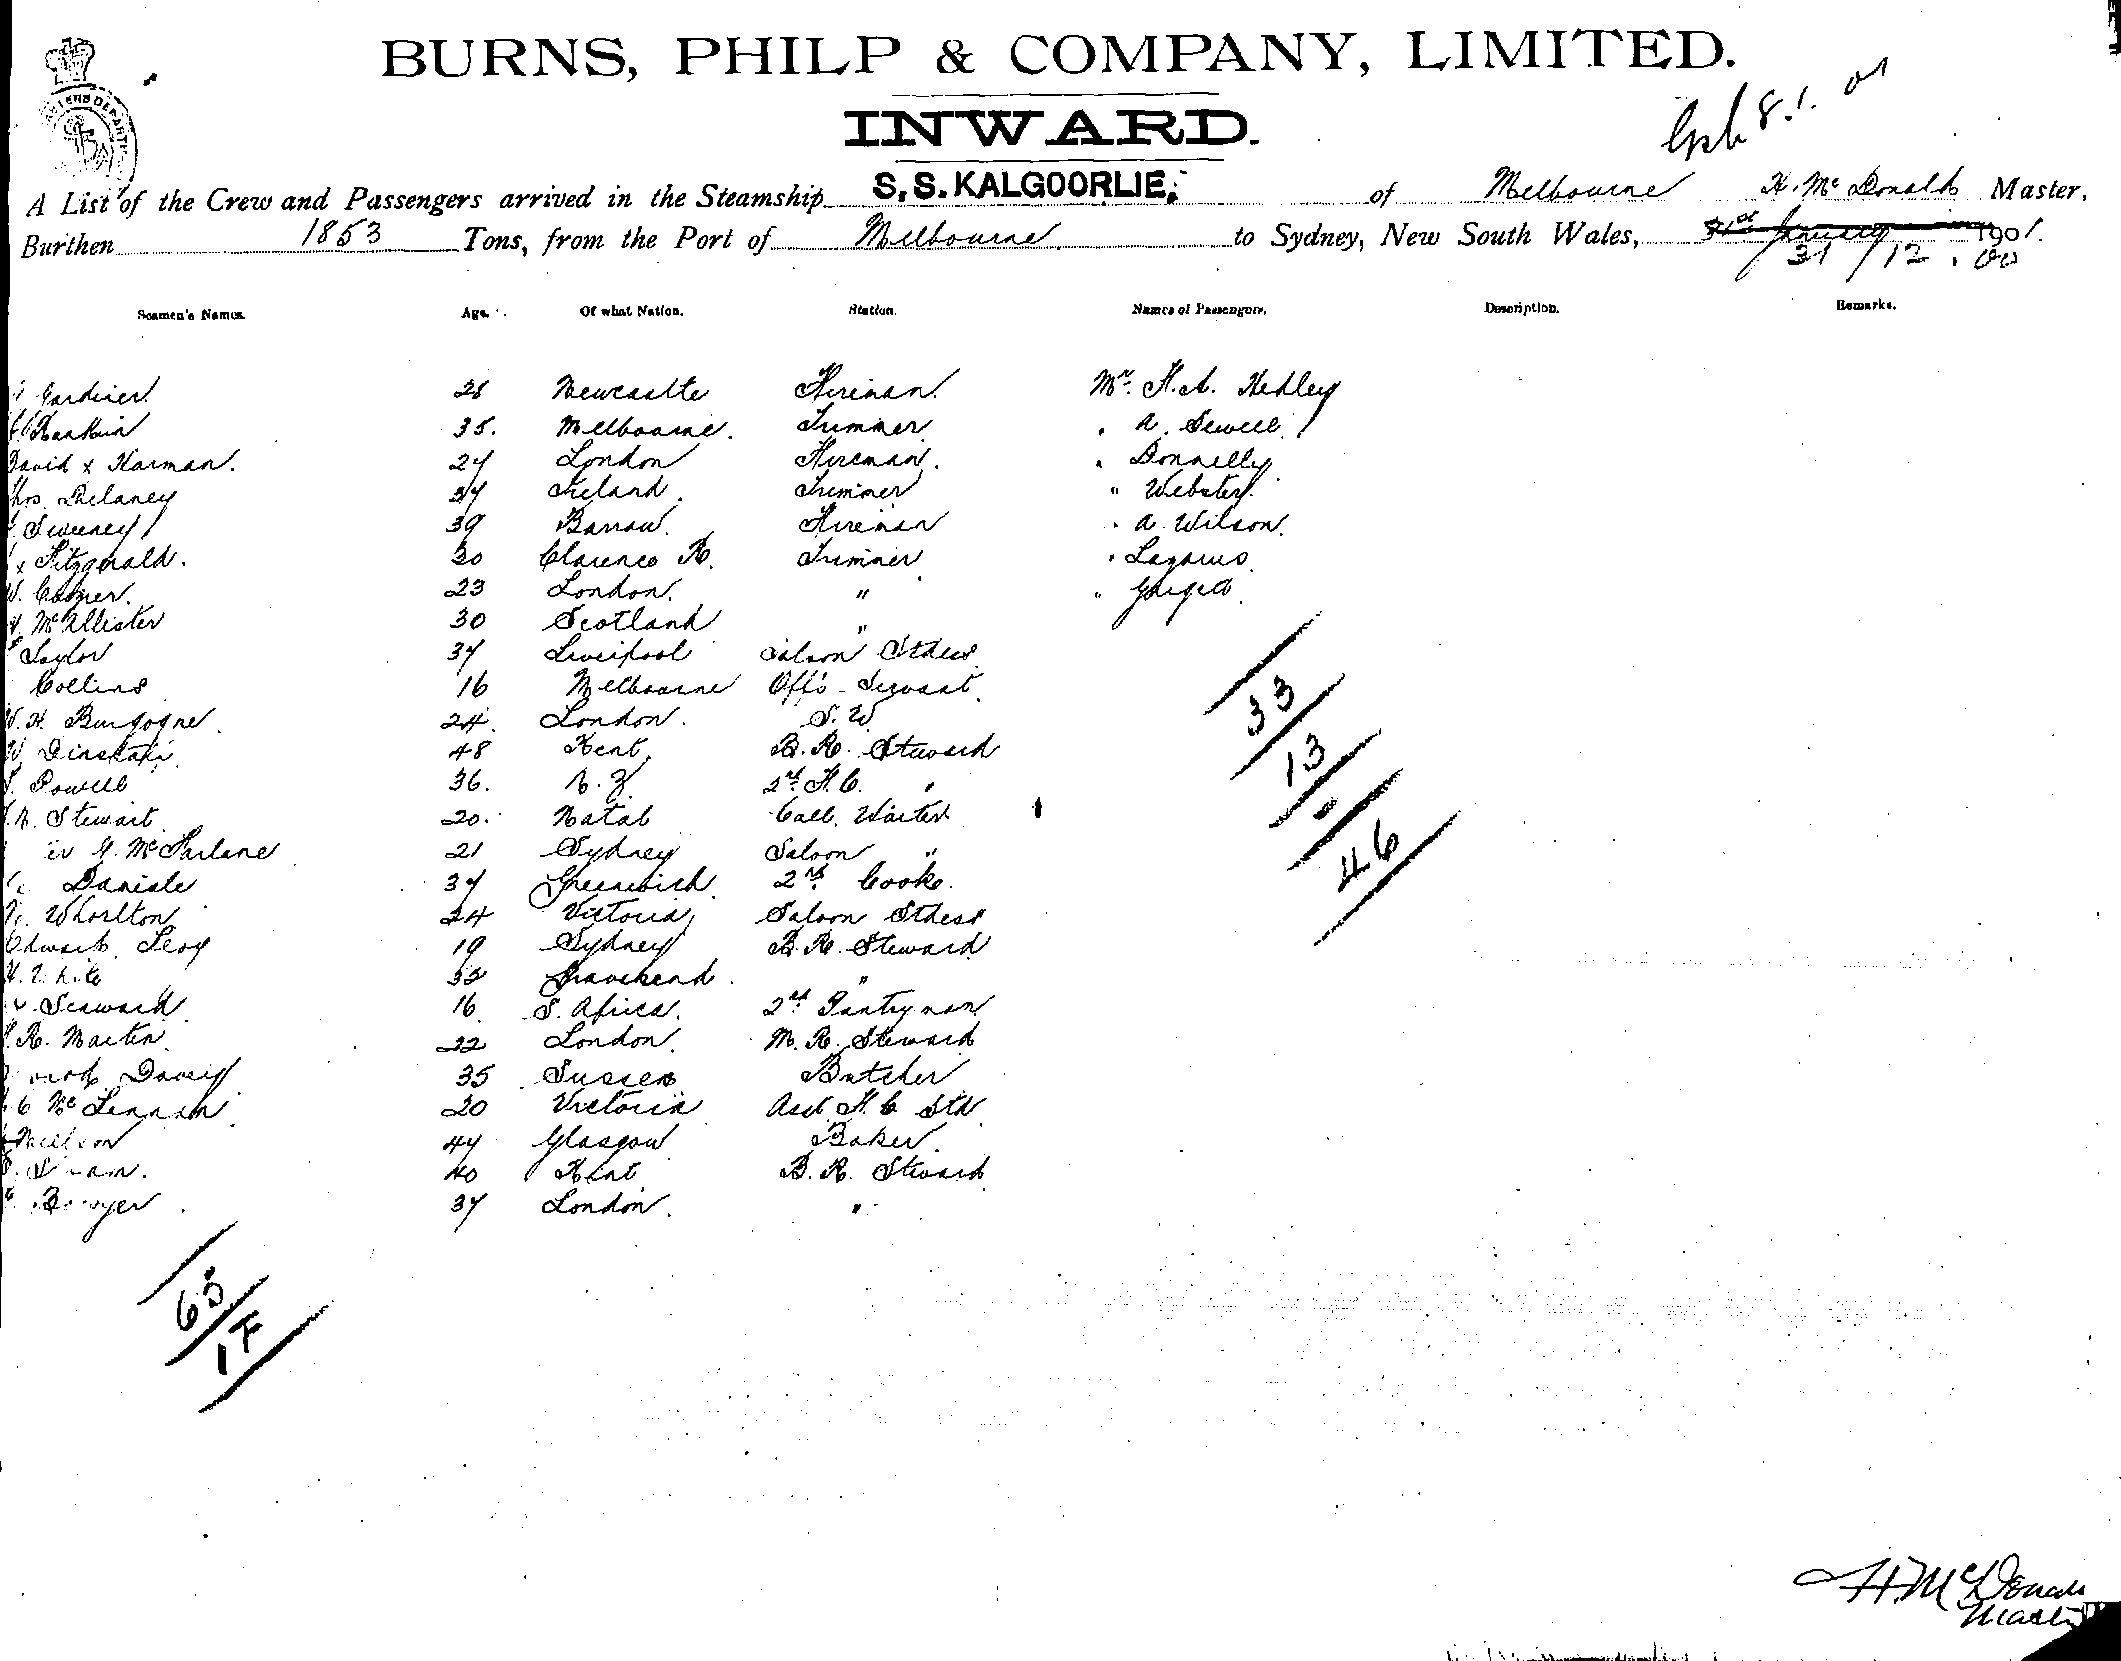 BURNS, PHILP & COMPANY, LIMITED.
INWARD.
8. 1. 01
A List of the Crew and Passengers arrived in the Steamship S.S. KALGOORLIE, of Melbourne H. McDonald Master,
Burthen 1853 Tons, from the Port of Melbourne to Sydney, New South Wales, 31st January 1901.
31/12.00
Seamen's Names. Age. Of what Nation. Station. Names of Passengers. Description. Remarks.
Gardiner 28 Newcastle Fireman Mr. H.A. Hedley
Rankin 35. Melbourne. Trimmer " A. Sewell
David x Harman. 27 London Fireman. " Donnelly
Thos. Delaney 37 Ireland. Trimmer " Webster.
Sweeney 39 Barrow. Fireman " A. Wilson.
x Fitzgerald. 30 Clarence R. Trimmer " Lazarus.
W. Cooper. 23 London. " "
McAllister 30 Scotland "
Taylor 37 Liverpool Saloon Stdess
Collins 16 Melbourne Offs Servant.
W. H. Burgogne. 24. London. S. W
W. 48 Kent. B. R. Steward
Powell 36. N. Z. 2nd F.C. "
Stewart. 20. Natal Call. Waiter
G. McFarlane 21 Sydney Saloon "
Daniele 37 Greenwich 2nd Cook.
Whorlton 24 Victoria, Saloon Stdess
Edward Leoy 19 Sydney B. R. Steward
33 Gravesend. "
Seaward. 16. S. Africa. 2nd Pantryman
R. Martin. 22 London. M. R. Steward
Davey 35 Sussex Butcher
McLennan. 20 Victoria Asst. F. C. Std.
Neilson 44 Glasgow Baker.
40 Kent B. R. Steward.
Bowyer. 37 London. "
33
13
46
63
1 F
H McDonald
Master